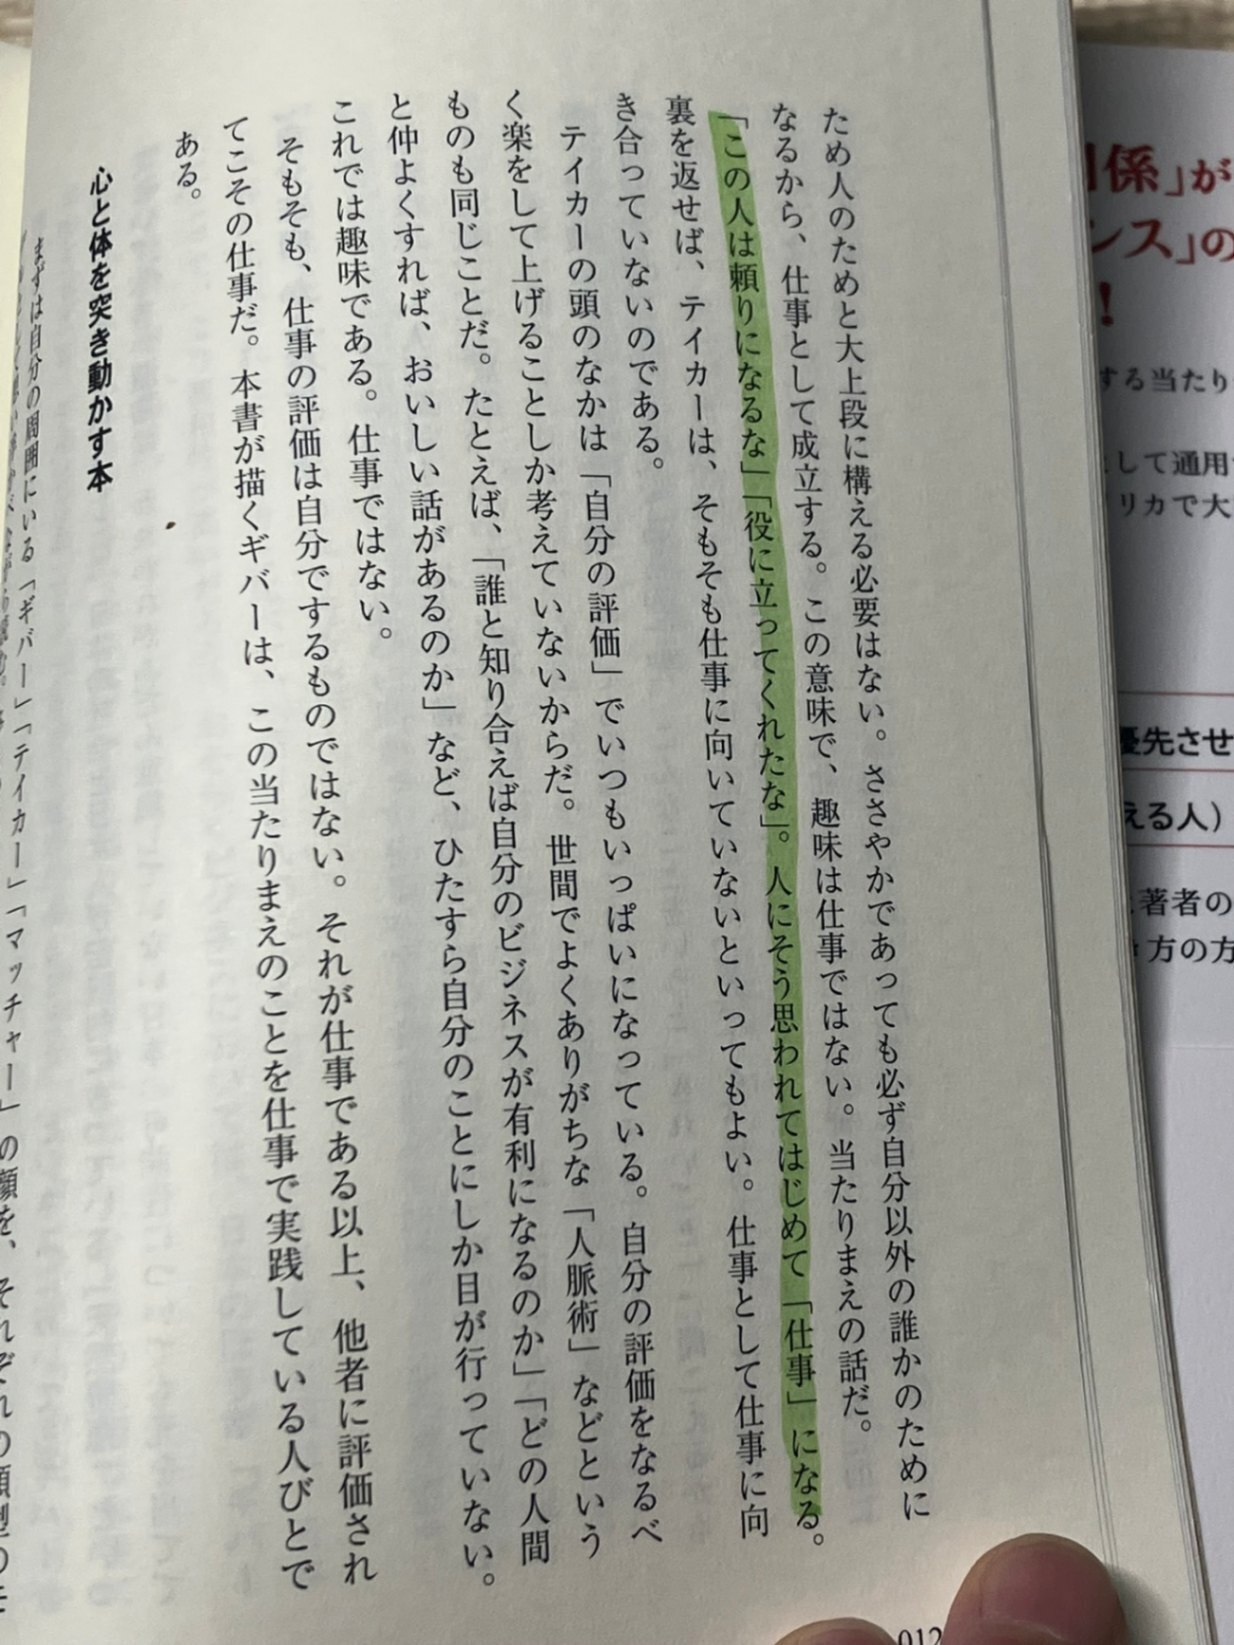 ため人のためと大上段に構える必要はない。ささやかであっても必ず自分以外の誰かのために
なるから、仕事として成立する。この意味で、趣味は仕事ではない。当たりまえの話だ。
「この人は頼りになるな」「役に立ってくれたな」。人にそう思われてはじめて「仕事」になる。
裏を返せば、テイカーは、そもそも仕事に向いていないといってもよい。仕事として仕事に向
き合っていないのである。
テイカーの頭のなかは「自分の評価」でいつもいっぱいになっている。自分の評価をなるべ
く楽をして上げることしか考えていないからだ。世間でよくありがちな「人脈術」などという
ものも同じことだ。たとえば、「誰と知り合えば自分のビジネスが有利になるのか」「どの人間
と仲よくすれば、おいしい話があるのか」など、ひたすら自分のことにしか目が行っていない。
これでは趣味である。仕事ではない。
そもそも、仕事の評価は自分でするものではない。それが仕事である以上、他者に評価され
てこその仕事だ。本書が描くギバーは、この当たりまえのことを仕事で実践している人びとで
ある。
心と体を突き動かす本
まずは自分の周囲にいる「ギバー」「テイカー」「マッチャー」の顔を、それぞれの類型の
012
係」が
ンス」の
！
する当たり
して通用
リカで大
優先させ
える人）
著者の
方の方